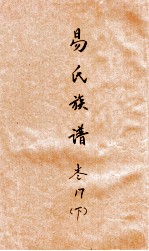 易氏族谱
卷17
(下)